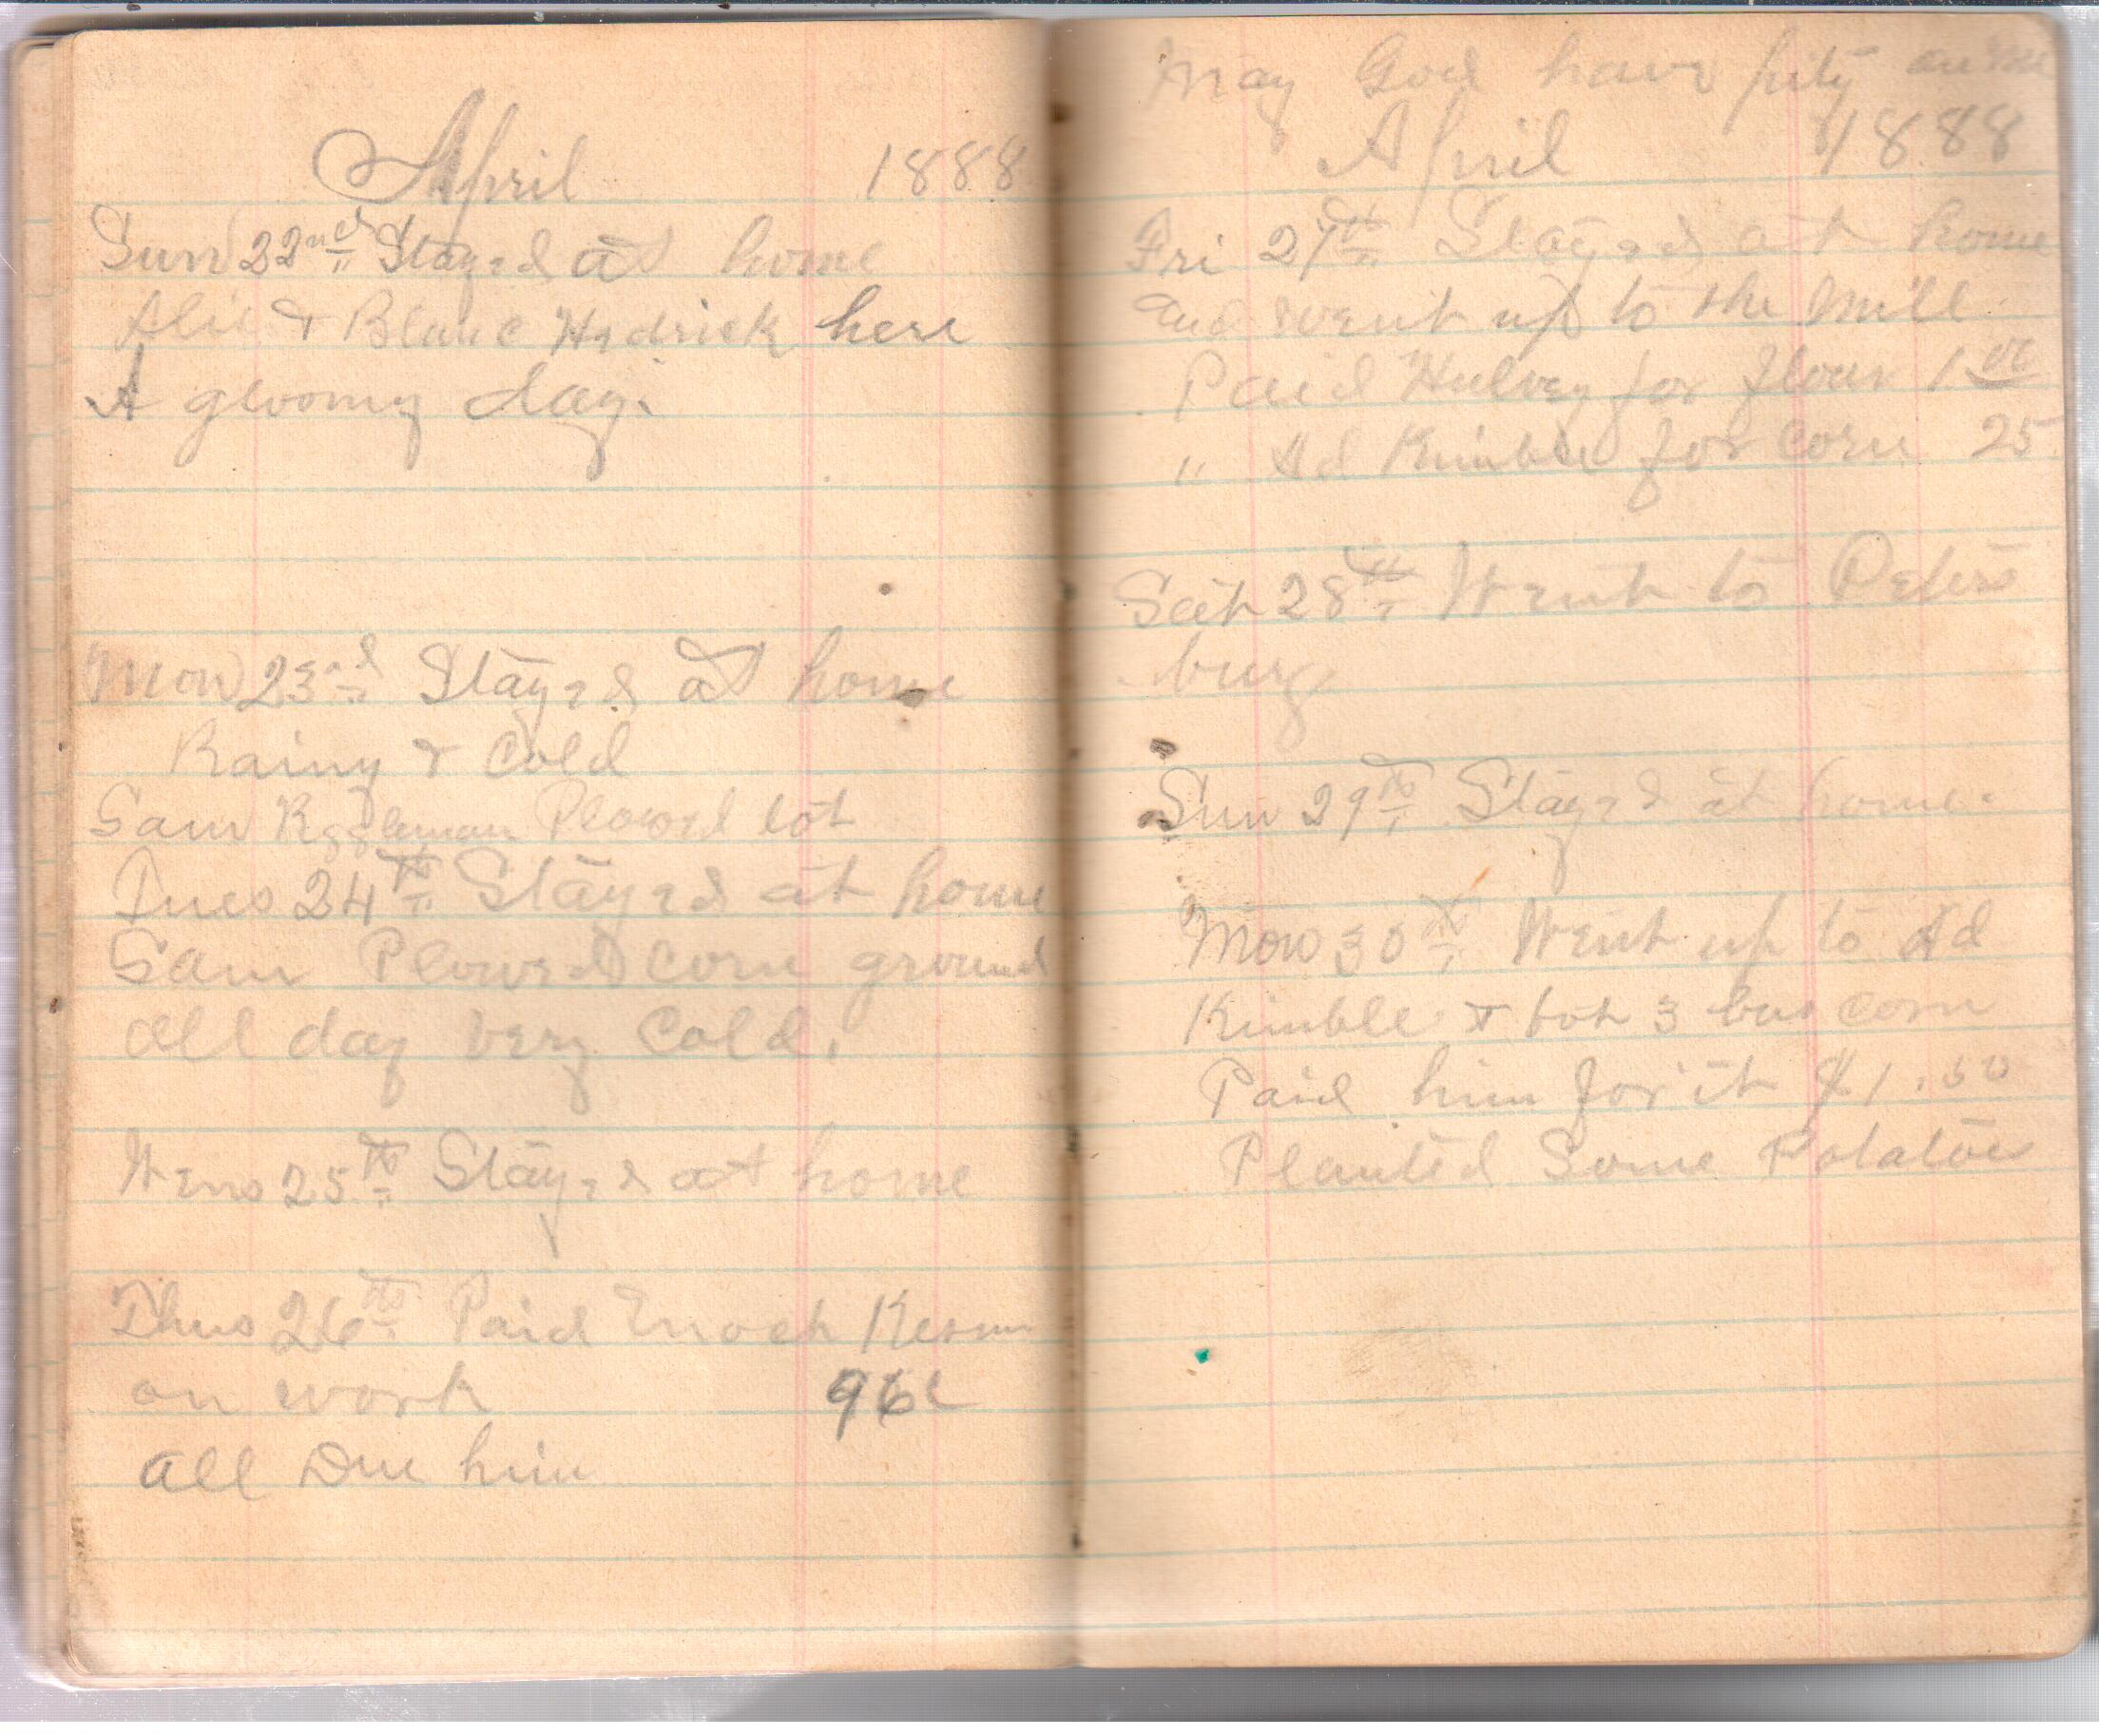 April 1888
Sun 22nd Stayed at home
& Blanc Hedrick here
A gloomy day.
Mon 23rd Stayed at home
Rainy & Cold
Sam Plowed lot
Tues 24th Stayed at home
Sam Plowed corn ground
all day very Cold.
Wens 25th Stayed at home
Thus 26th Paid Enoch
on work 96c
all Due him
May God have pity on me
April 1888
Fri 27th Stayed at home
and went up to the Mill.
Paid Hulvey for flour 1 00
" Ad Kimble for corn 25
Sat 28th Went to Peters
burg
Sun 29th Stayed at home.
Mon 30th Went up to Ad
Kimble & got 3 bus corn
Paid him for it $1.50
Planted Some Potatoes